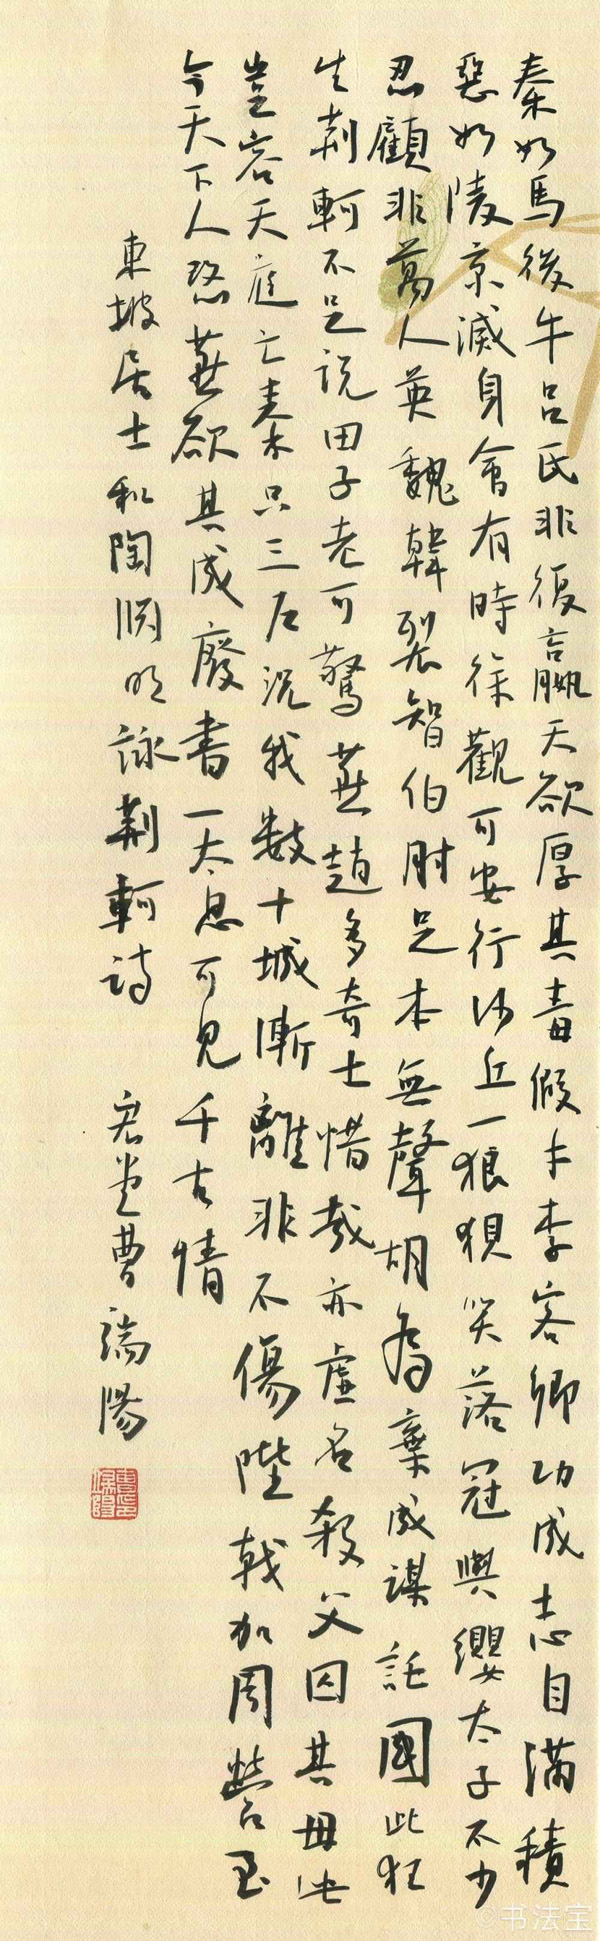 秦如馬後牛呂氏非復嬴天欲厚其毒假手李客卿功成志自滿積
惡如陵京滅身會有時徐觀可安行沙丘一狼狽笑落冠與纓太子不少
忍顧非萬人英魏韓裂智伯肘足本無聲胡為棄成謀託國此狂
生荆軻不足說田子老可驚燕趙多奇士惜哉亦虛名殺父囚其母此
豈容天庭亡秦只三户況我數十城漸離非不傷陛戟加周營至
今天下人愍燕欲其成廢書一太息可見千古情
東坡居士和陶淵明詠荆軻詩 君堂曹端陽
©书法宝